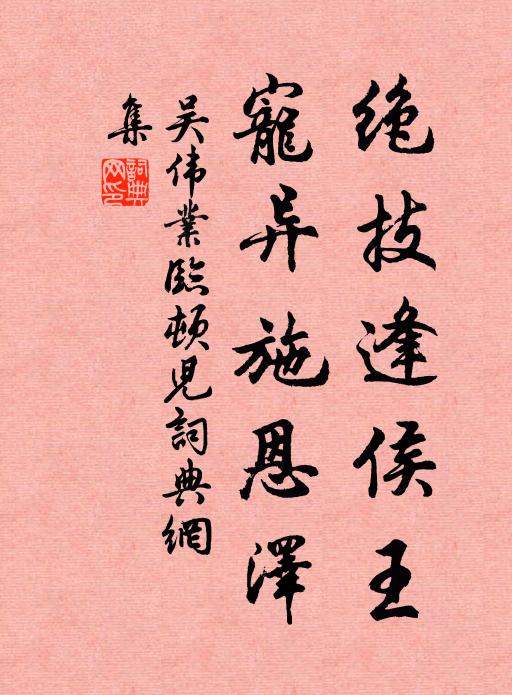 绝技逢侯王
寵异施恩澤
吴伟業臨頓児詞典網
集
詞典
网印